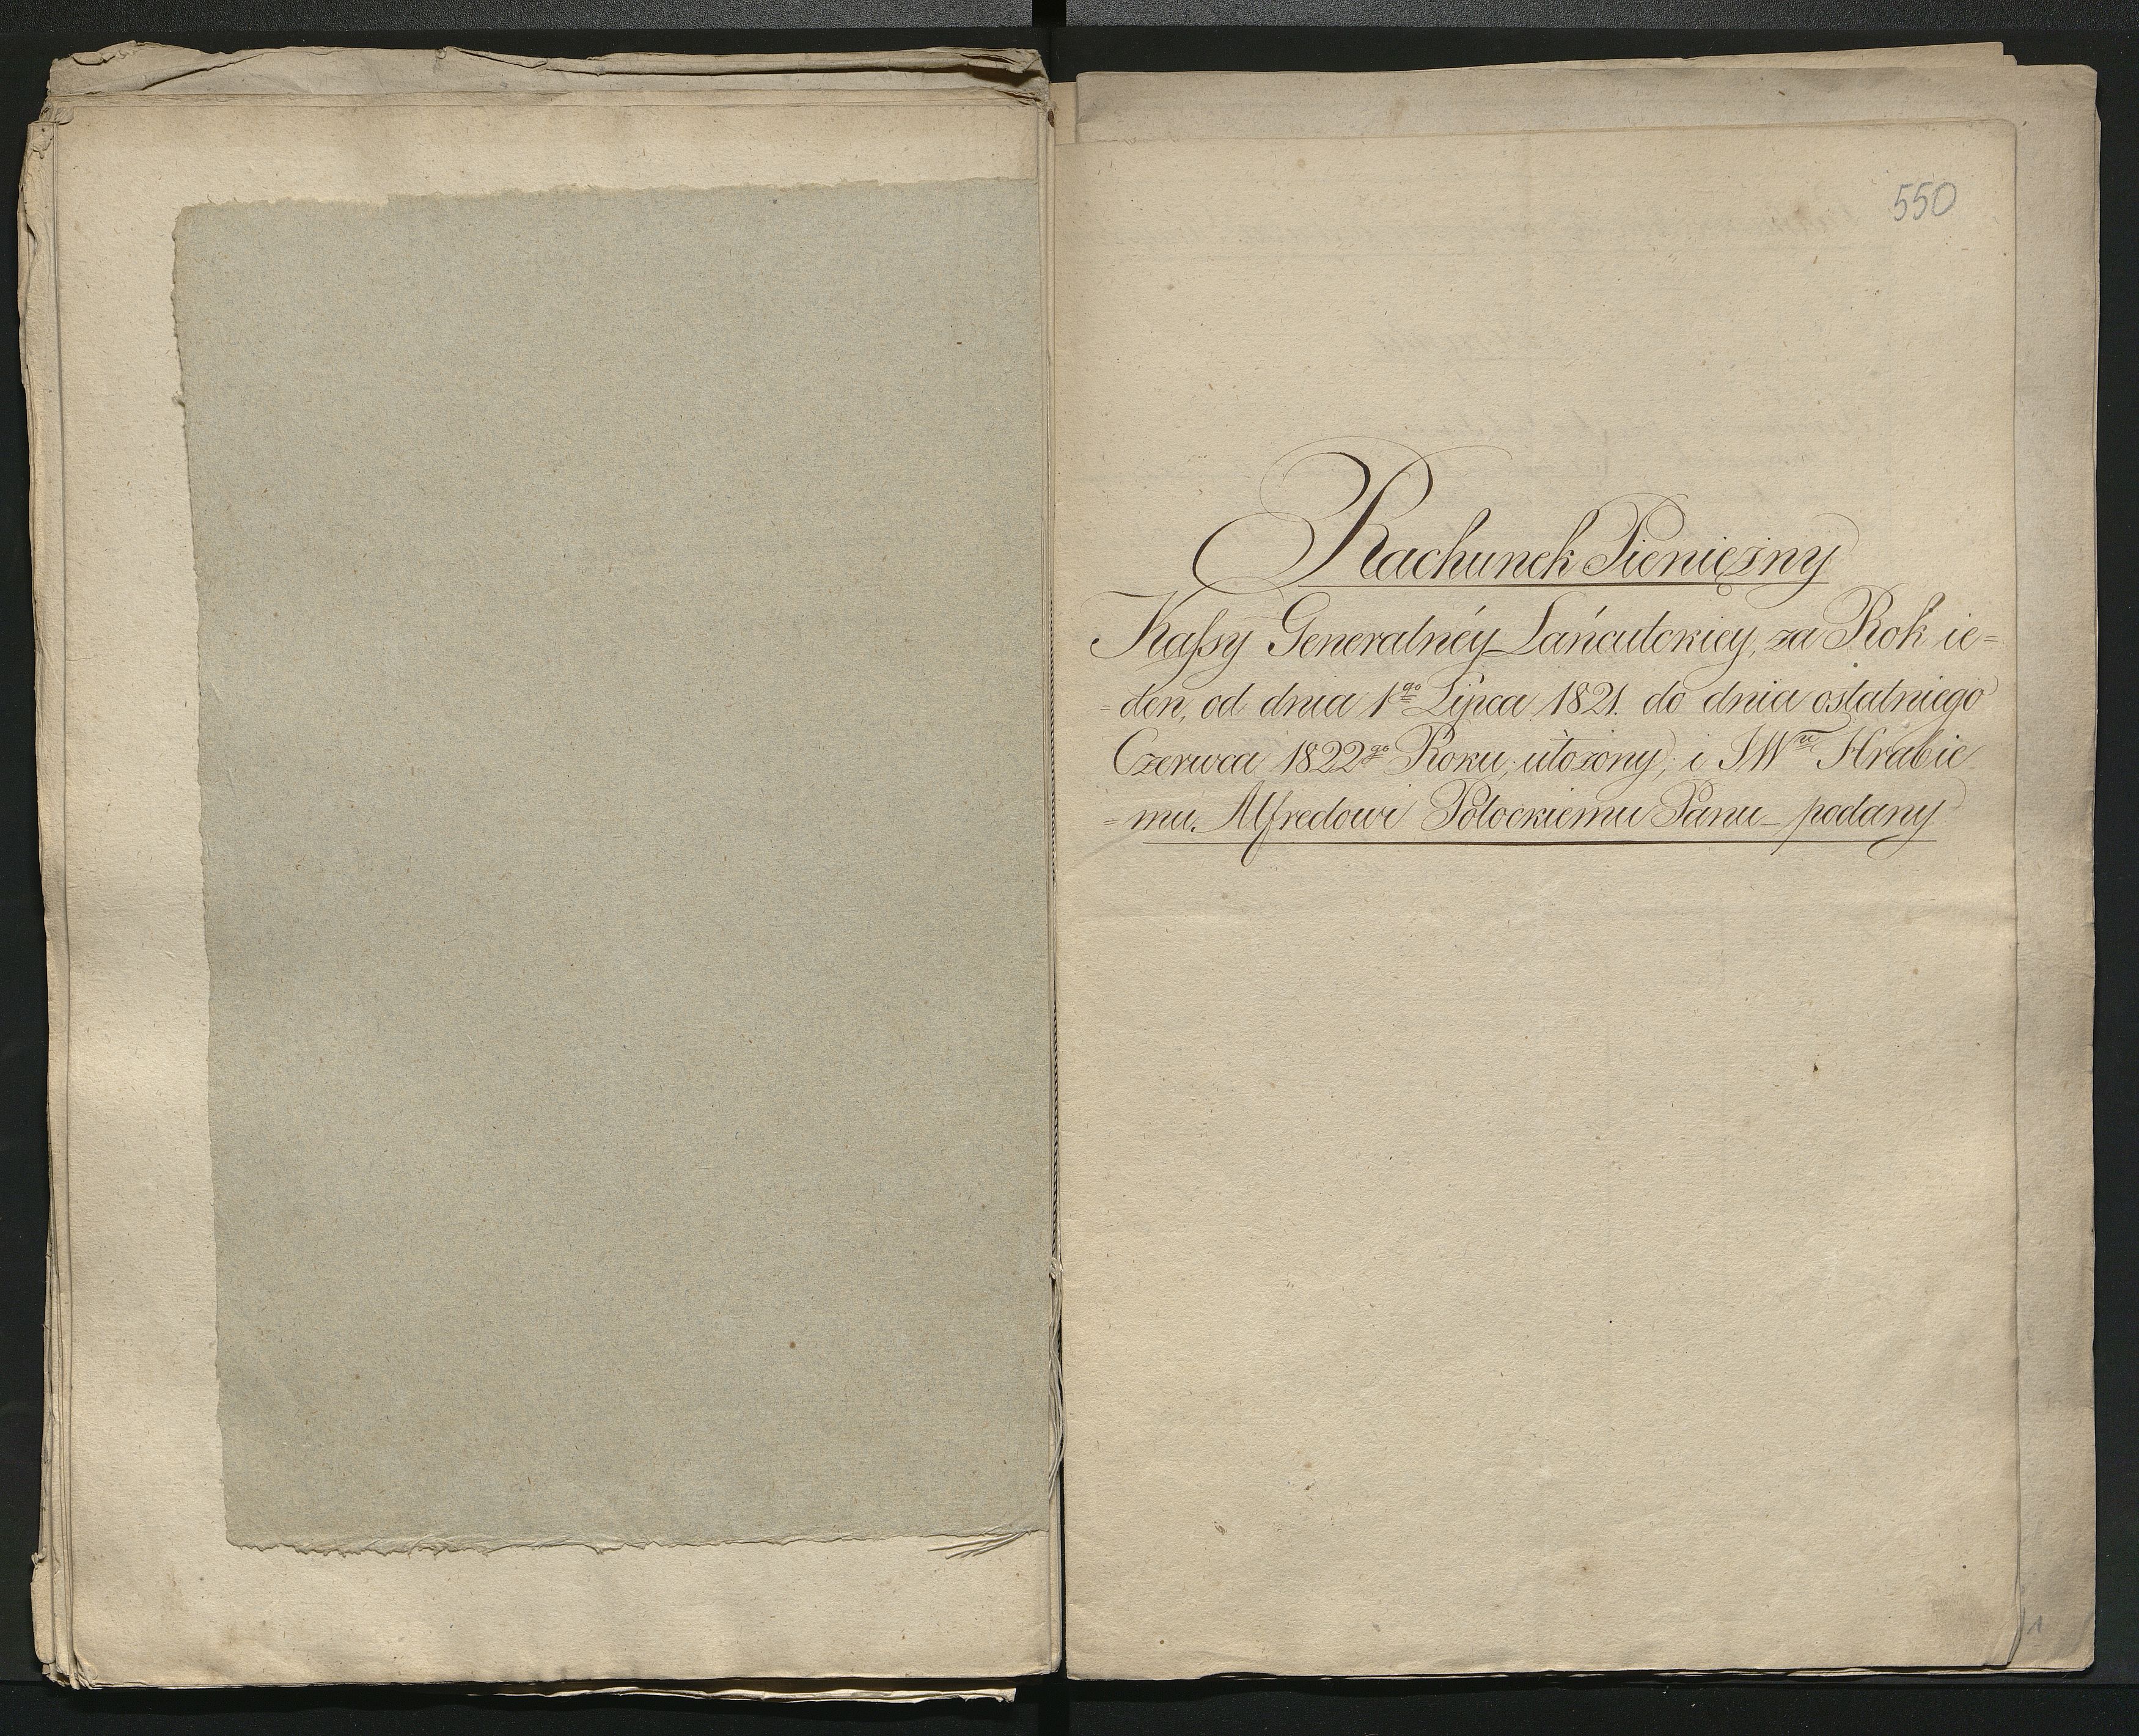 550
Rachunek Pieniężny
Kaſsy Generalnéy Łańcutckiey, za Rok ie=
=den, od dnia 1go Lipca 1821. do dnia ostatniego
Czerwca 1822go Roku, ułożony, i JWmu Hrabie
=mu. Alfredowi Potockiemu Panu – podany